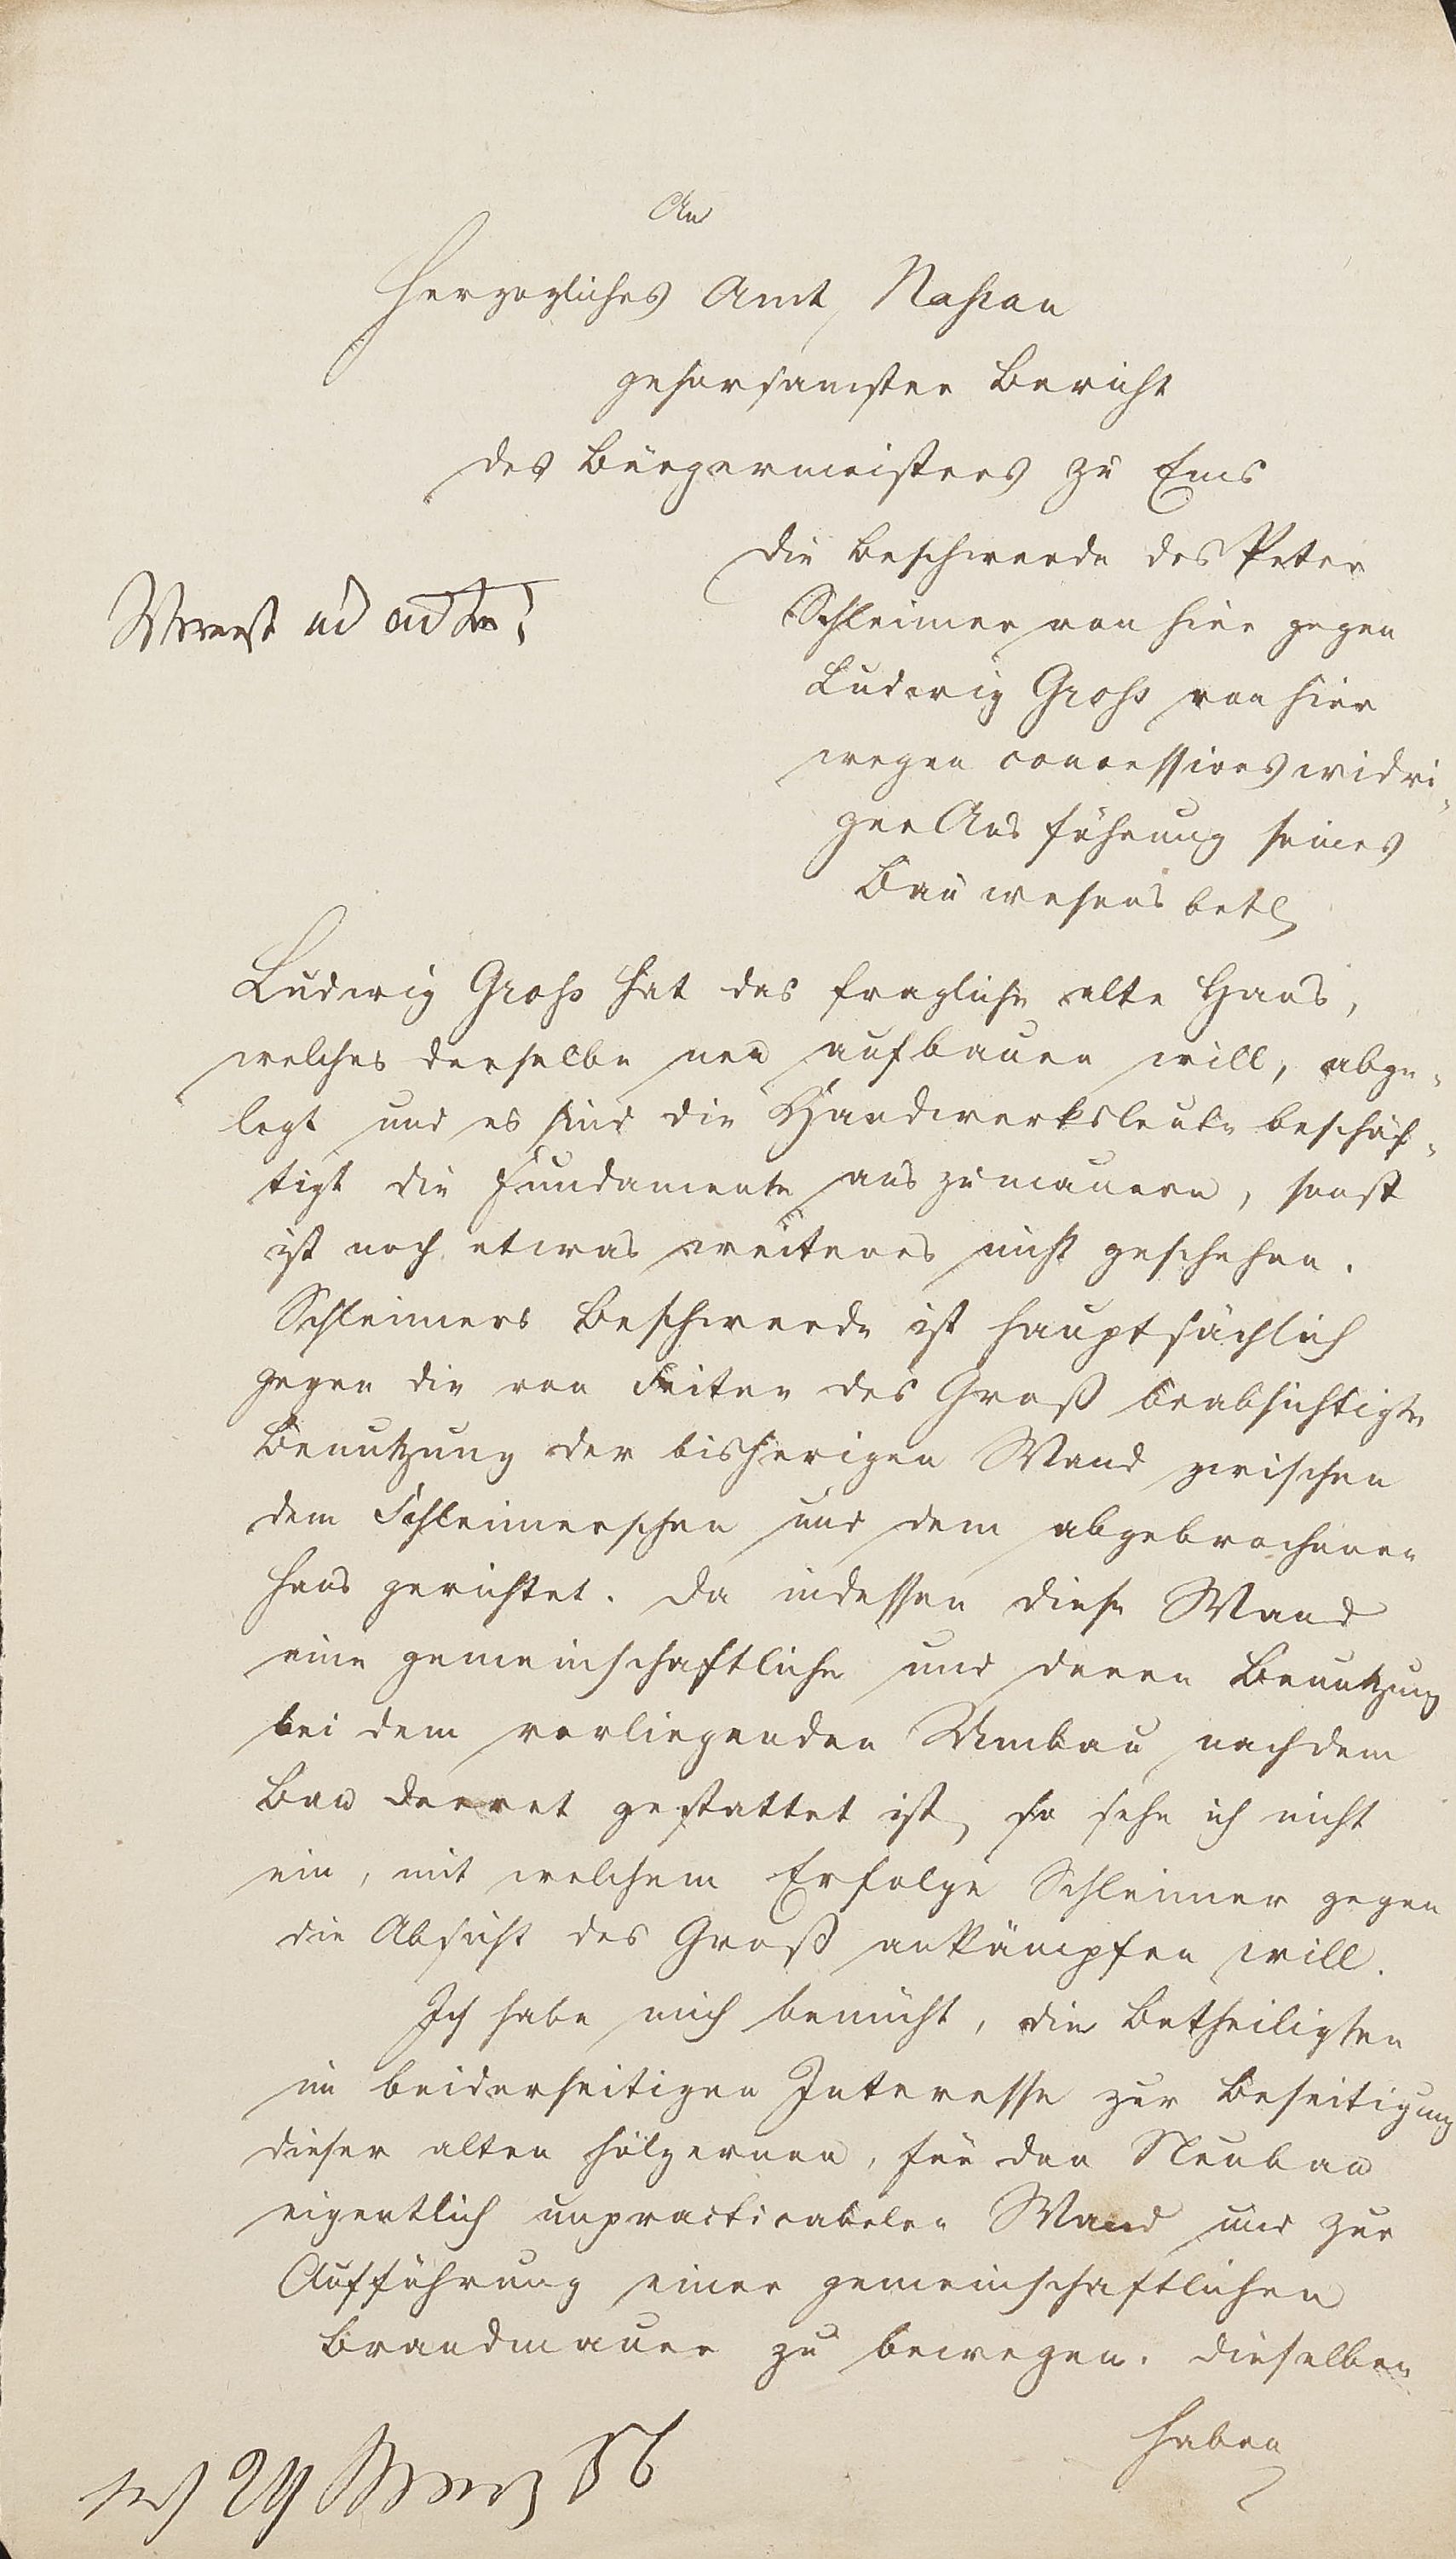 An
Herzogliches Amt, Nassau
gehorsamster Bericht
des Bürgermeisters zu Ems
die Beschwerde des Peter
Schleimer von hier gegen
Ludwig Gross von hier
wegen concessionswidri-
ger Ausführung seines
Bauwesens betr
Vorerst ad acta!
Ludwig Gross hat das fragliche alte Haus,
welches derselbe neu aufbauen will, abge-
legt und es sind die Handwerksleute beschäf-
tigt die Fundamente auszumauern, sonst
ist noch etwas weiteres nicht geschehen.
Schleimers Beschwerde ist hauptsächlich
gegen die von Seiten des Groß beabsichtigte
Benutzung der bisherigen Wand zwischen
dem Schleimerschen und dem abgebrochenen
Haus gerichtet. Da indessen diese Wand
eine gemeinschaftliche und deren Benutzung
bei dem vorliegenden Umbau nach dem
Bau decret gestattet ist, so sehe ich nicht
ein, mit welchem Erfolge Schleimer gegen
die Absicht des Groß ankämpfen will.
Ich habe mich bemüht, die Betheiligten
im beiderseitigen Interesse zur Beseitigung
dieser alten hölzernen, für den Neubau
eigentlich unpracticabelen Wand und zur
Aufführung einer gemeinschaftlichen
Brandmauer zu bewegen. Dieselben
haben
29 März 56